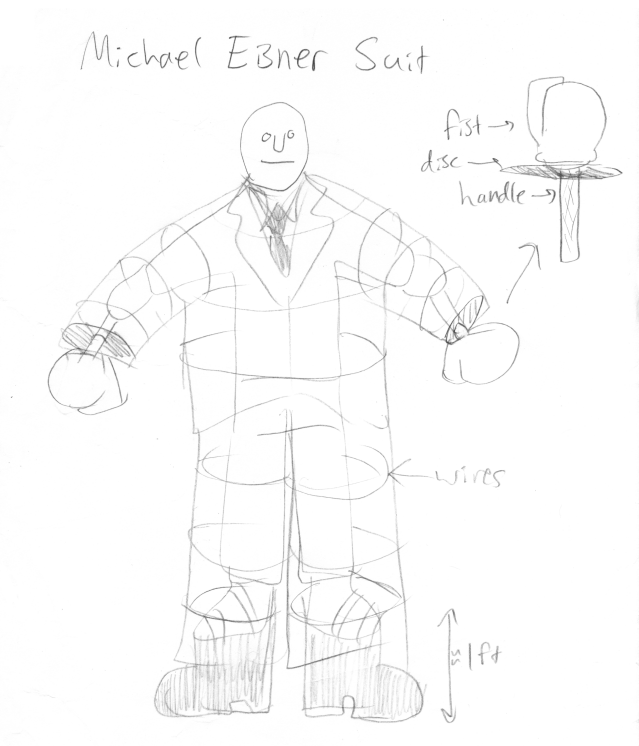 Michael Eisner Suit
fist
disc
handle
wires
≈ 1ft